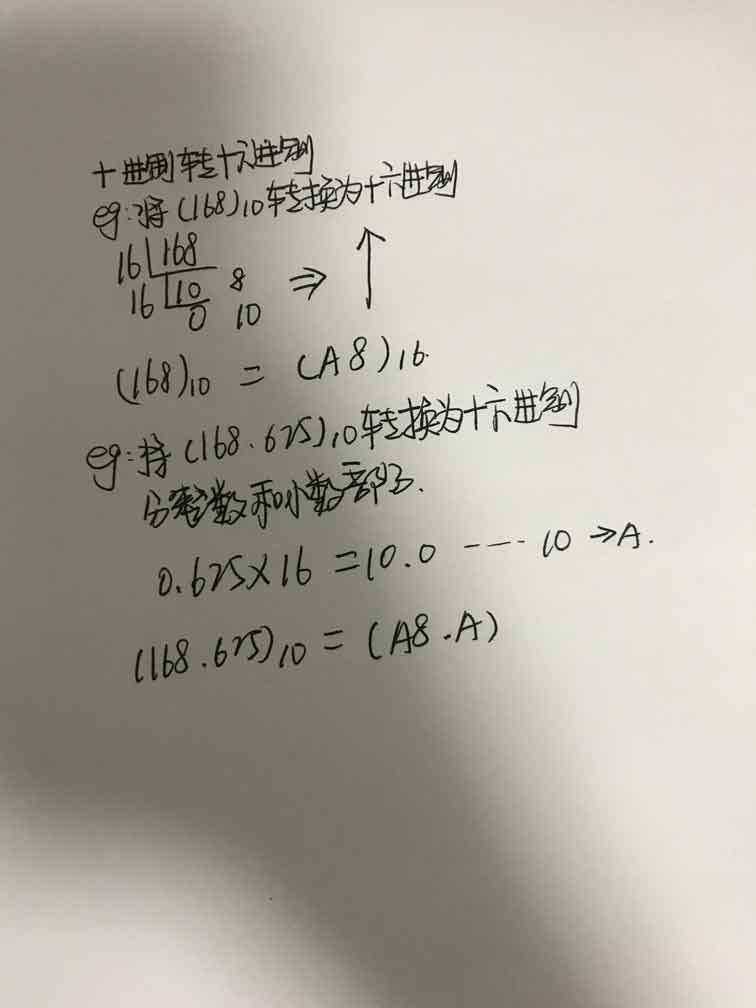 十进制转十六进制
eg:将(168)10转换为十六进制
16 168
16 10 8 ⇒ ↑
0 10
(168)10 = (A8)16.
eg:将(168.625)10转换为十六进制
分整数和小数部分.
0.625×16=10.0 ---- 10→A.
(168.625)10 = (A8.A)